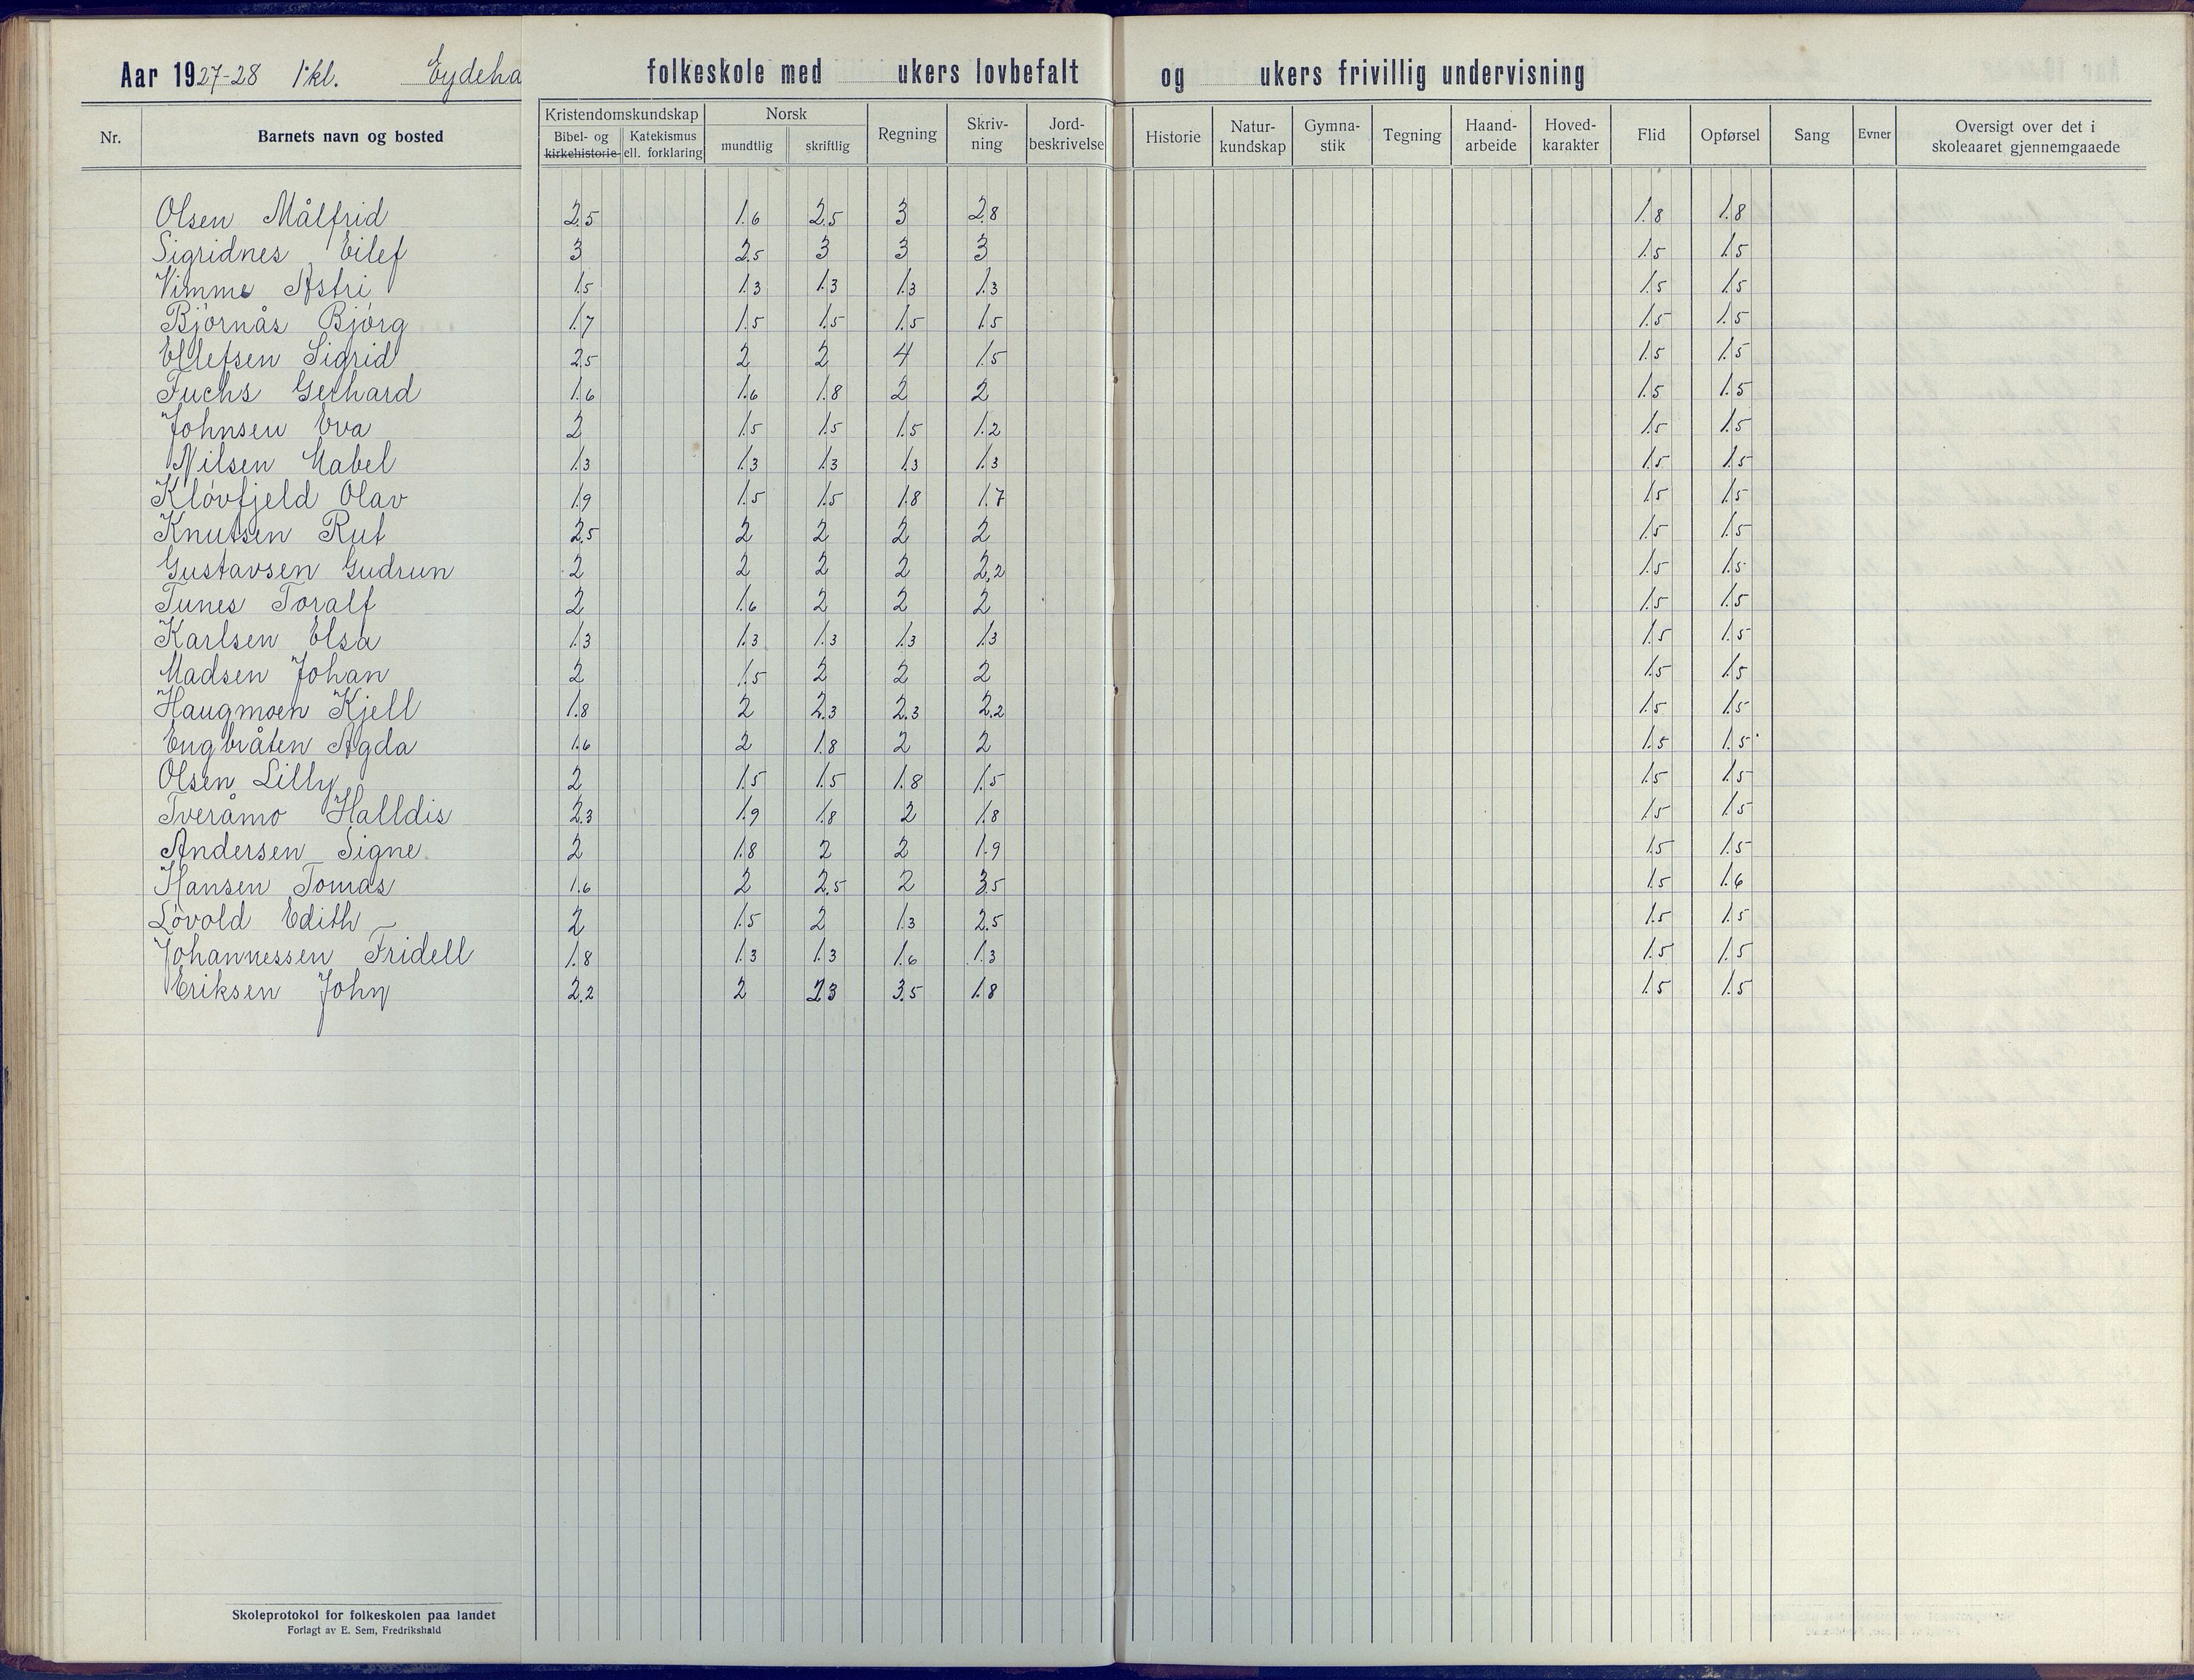 Aar 1927-28 1kl. Eydeha folkeskole med ukers lovbefalt og ukers frivillig undervisning
Nr. Barnets navn og bosted Kristendomskundskap Bibel- og kirkehistorie Katekismus ell. forklaring Norsk mundtlig skriftlig Regning Skriv-ning Jord-beskrivelse Historie Natur-kundskap Gymna-stik Tegning Haand-arbeide Hoved-karakter Flid Opførsel Sang Evner Oversigt over det i skoleaaret gjennemgaaede
Olsen Målfrid 2.5 1.6 2.5 3 2.8 1.8 1.8
Sigridnes Eilef 3 2.5 3 3 3 1.5 1.5
Vimme Astri 1.5 1.3 1.3 1.3 1.3 1.5 1.5
Björnås Björg 1.7 1.5 1.5 1.5 1.5 1.5 1.5
Ellefsen Sigrid 2.5 2 2 4 1.5 1.5 1.5
Fuchs Gerhard 1.6 1.6 1.8 2 2 1.5 1.5
Johnsen Eva 2 1.5 1.5 1.5 1.2 1.5 1.5
Nilsen Mabel 1.3 1.3 1.3 1.3 1.3 1.5 1.5
Klövfjeld Olav 1.9 1.5 1.5 1.8 1.7 1.5 1.5
Knutsen Rut 2.5 2 2 2 2 1.5 1.5
Gustavsen Gudrun 2 2 2 2 2.2 1.5 1.5
Tunes Toralf 2 1.6 2 2 2 1.5 1.5
Karlsen Elsa 1.3 1.3 1.3 1.3 1.3 1.5 1.5
Madsen Johan 2 1.5 2 2 2 1.5 1.5
Haugmoen Kjell 1.8 2 2.3 2.3 2.2 1.5 1.5
Engbråten Agda 1.6 2 1.8 2 2 1.5 1.5
Olsen Lilly 2 1.5 1.5 1.8 1.5 1.5 1.5
Tveråmo Halldis 2.3 1.9 1.8 2 1.8 1.5 1.5
Andersen Signe 2 1.8 2 2 1.9 1.5 1.5
Hansen Tomas 1.6 2 2.5 2 3.5 1.5 1.6
Lövold Edith 2 1.5 2 1.3 2.5 1.5 1.5
Johannessen Fridell 1.8 1.3 1.3 1.6 1.3 1.5 1.5
Eriksen John 2.2 2 2.3 3.5 1.8 1.5 1.5
Skoleprotokol for folkeskolen paa landet
Forlagt av E. Sem, Fredrikshald